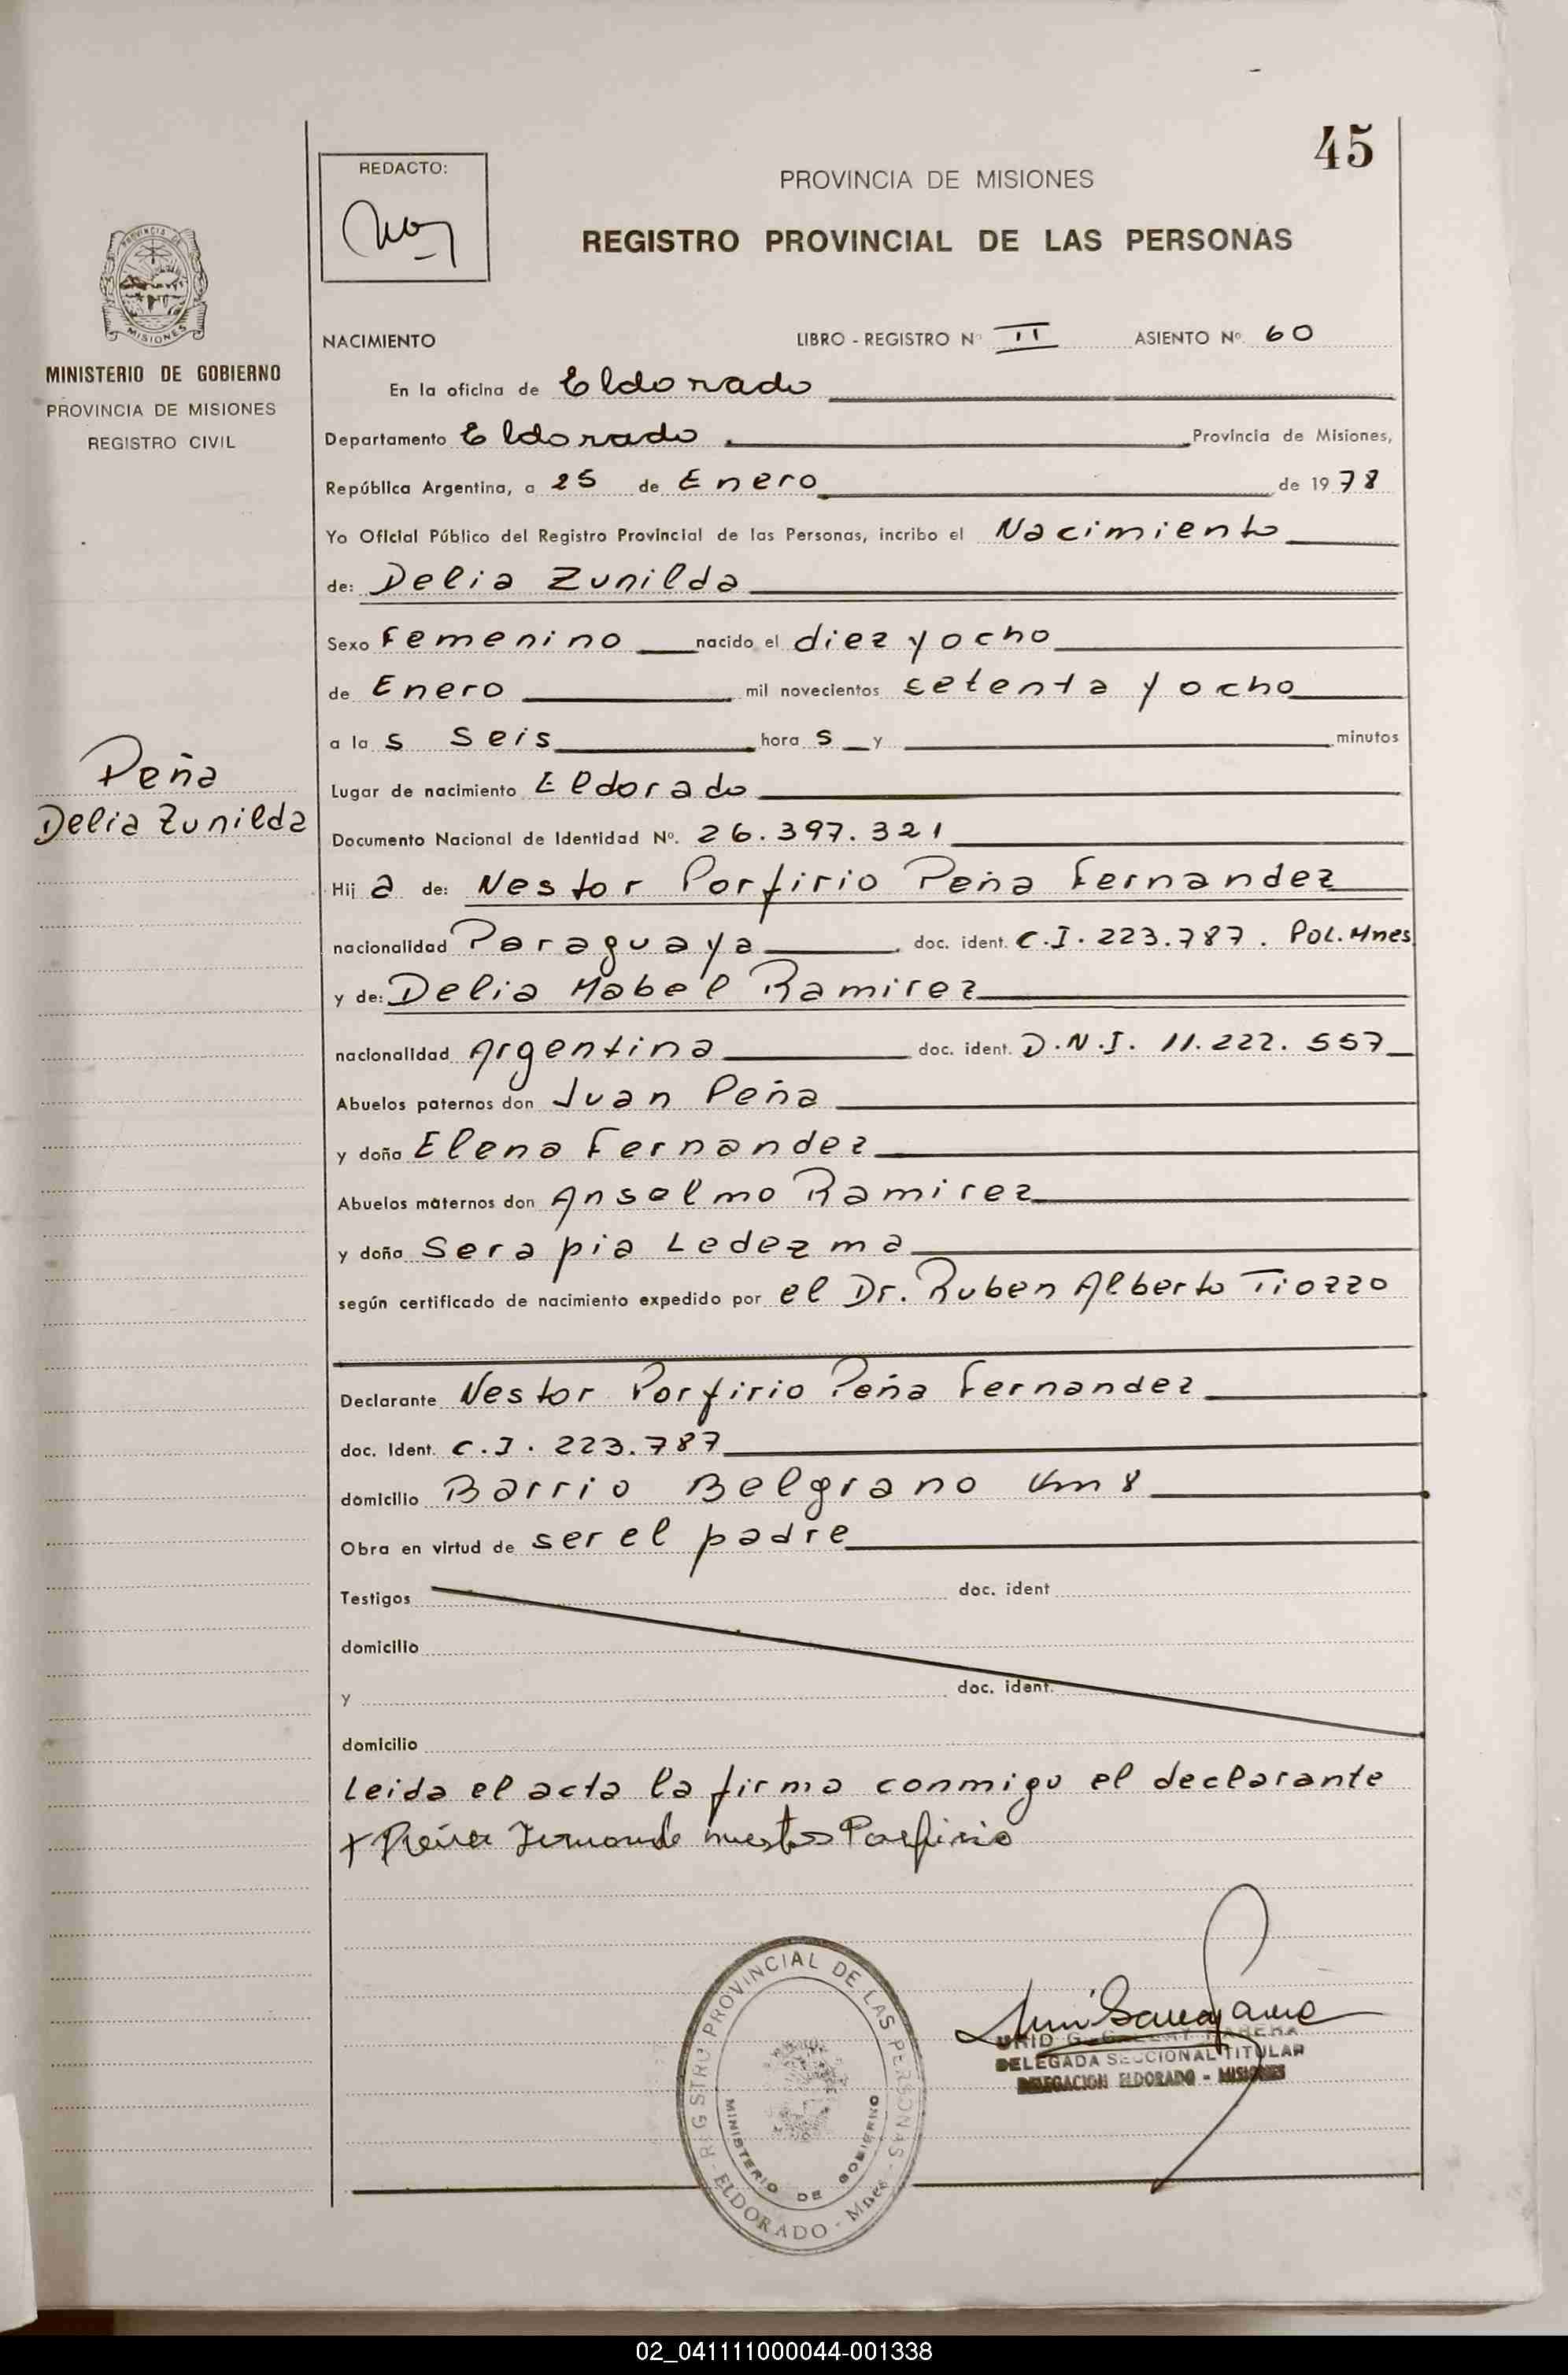 45
REDACTO:
PROVINCIA DE MISIONES
REGISTRO PROVINCIAL DE LAS PERSONAS
PROVINCIA DE
MISIONES
MINISTERIO DE GOBIERNO
PROVINCIA DE MISIONES
REGISTRO CIVIL
Peña
Delia Zunilda
NACIMIENTO LIBRO - REGISTRO Nº II ASIENTO Nº 60
En la oficina de Eldorado
Departamento Eldorado Provincia de Misiones,
República Argentina, a 25 de Enero de 1978
Yo Oficial Público del Registro Provincial de las Personas, incribo el Nacimiento
de: Delia Zunilda
Sexo Femenino nacido el diez y ocho
de Enero mil novecientos setenta y ocho
a las Seis horas y minutos
Lugar de nacimiento Eldorado
Documento Nacional de Identidad Nº. 26.397.321
Hija de: Nestor Porfirio Peña Fernandez
nacionalidad Paraguaya doc. ident. C.I. 223.787. Pol. Mnes
y de: Delia Mabel Ramirez
nacionalidad Argentina doc. ident. D.N.I. 11.222.557
Abuelos paternos don Juan Peña
y doña Elena Fernandez
Abuelos maternos don Anselmo Ramirez
y doña Serapia Ledezma
según certificado de nacimiento expedido por el Dr. Ruben Alberto Tiozzo
Declarante Nestor Porfirio Peña Fernandez
doc. Ident. C.I. 223.787
domicilio Barrio Belgrano Km 8
Obra en virtud de ser el padre
Testigos doc. ident
domicilio
y doc. ident.
domicilio
Leida el acta la firma conmigo el declarante
Porfirio
REGISTRO PROVINCIAL DE LAS PERSONAS
MINISTERIO DE GOBIERNO
ELDORADO - Mnes
DELEGADA SECCIONAL TITULAR
DELEGACION ELDORADO - MISIONES
02_041111000044-001338